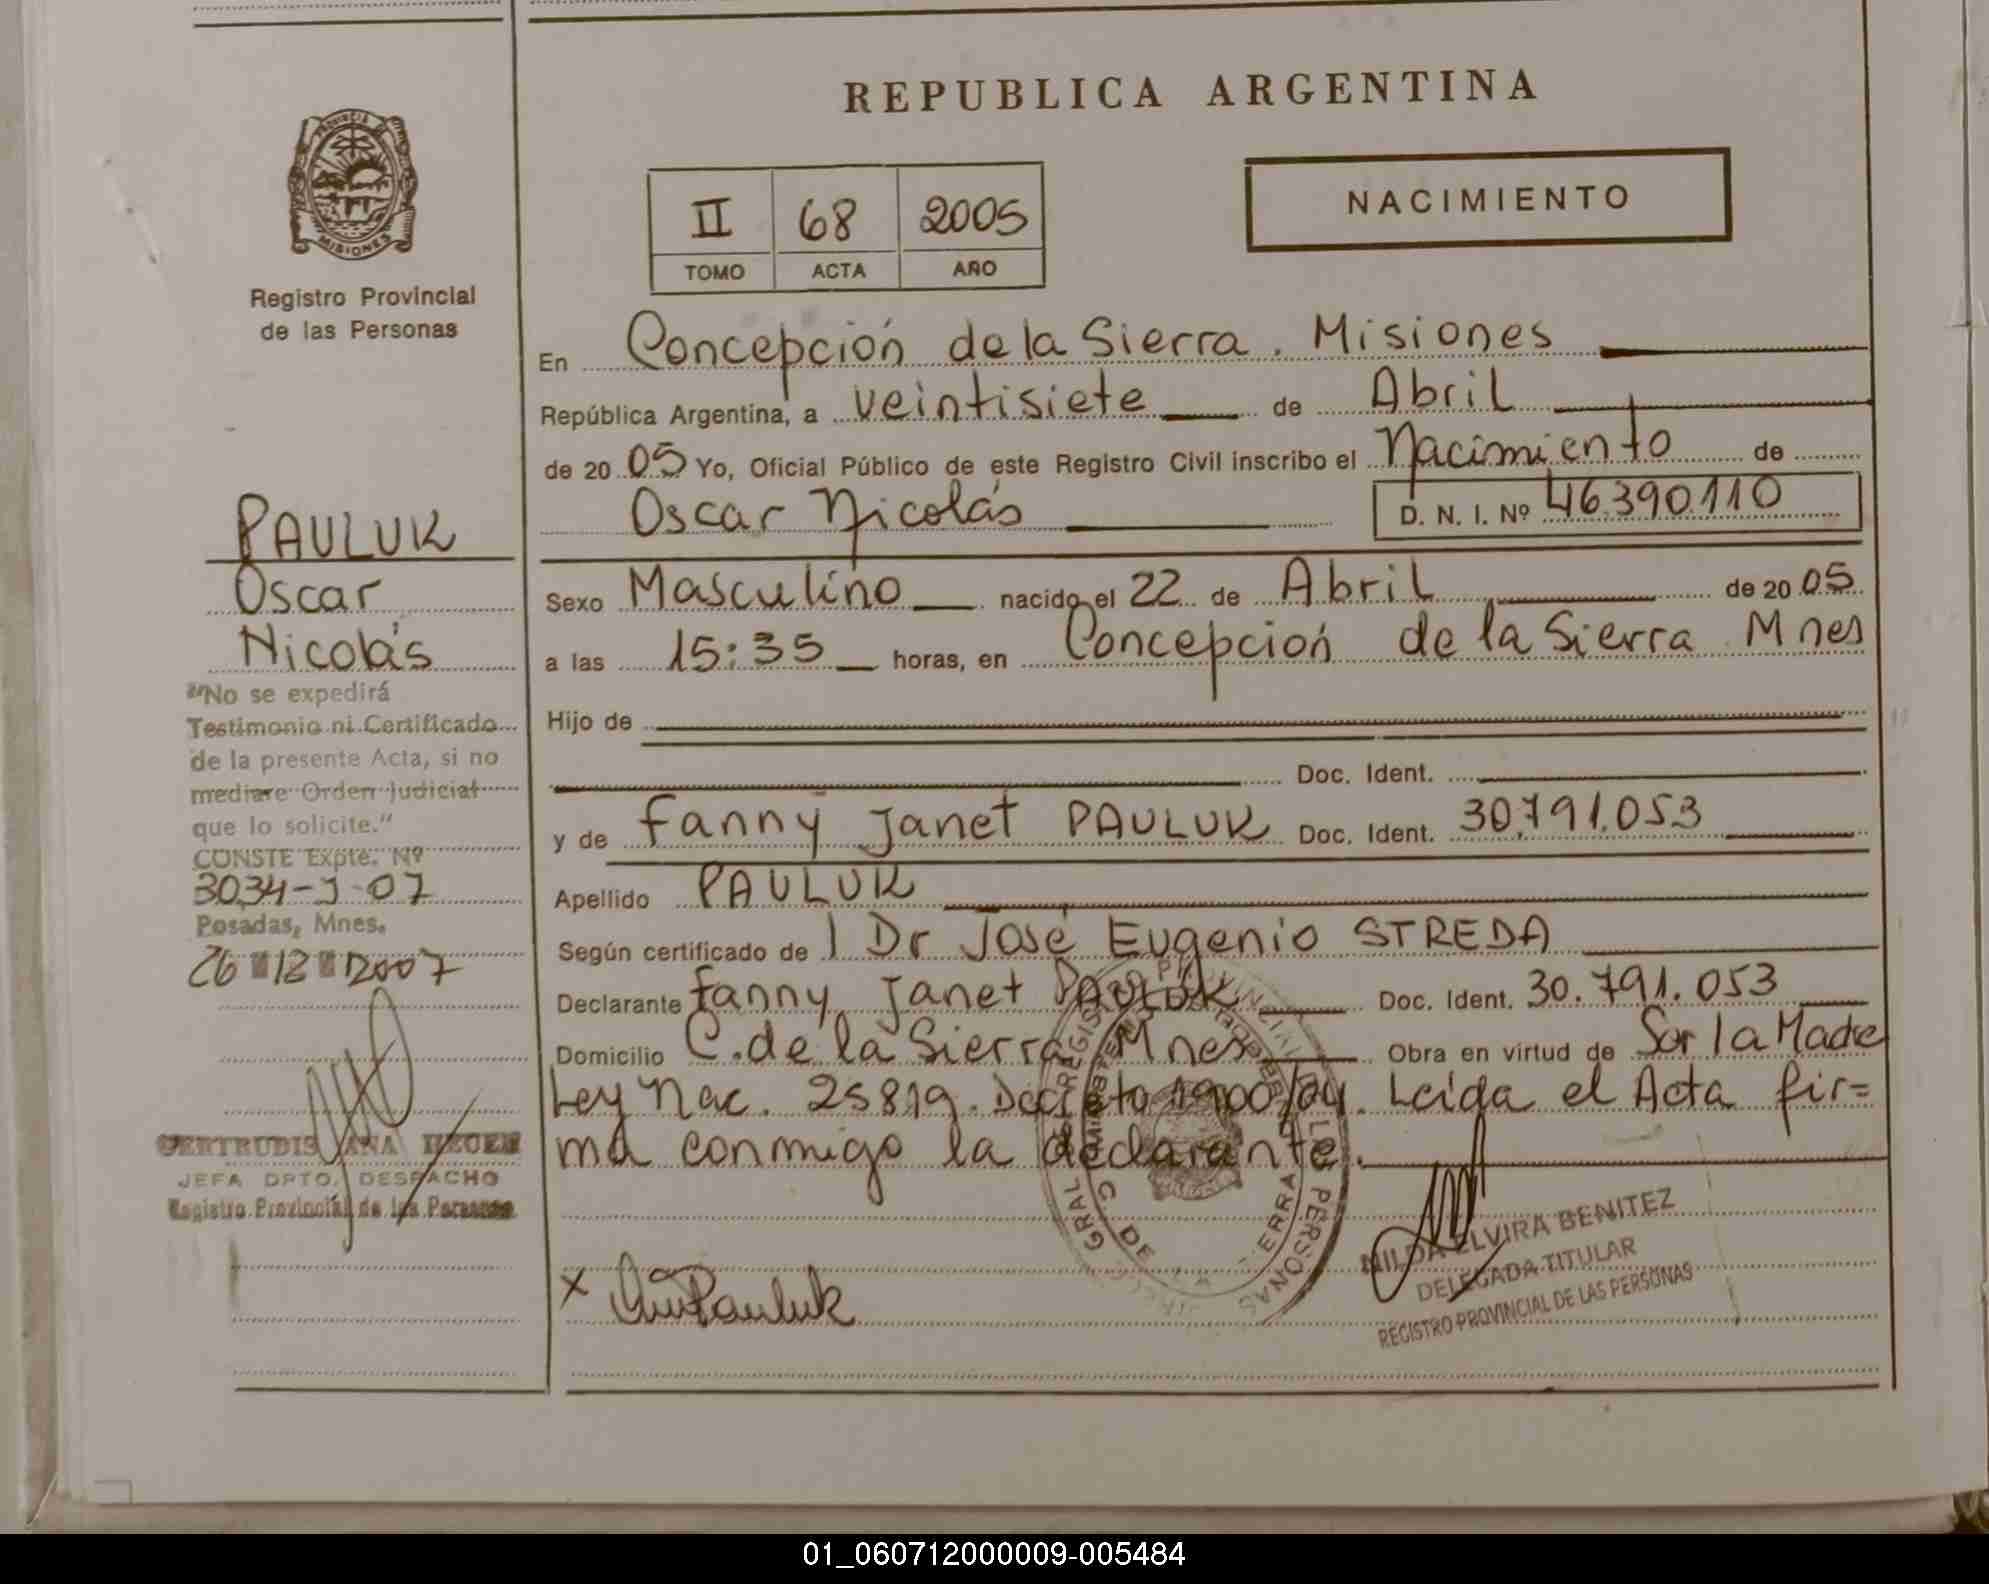 REPUBLICA ARGENTINA
PROVINCIA DE
MISIONES
Registro Provincial
de las Personas
II 68 2005
TOMO ACTA AÑO
NACIMIENTO
En Concepción de la Sierra. Misiones
República Argentina, a veintisiete de Abril
de 2005 Yo, Oficial Público de este Registro Civil inscribo el Nacimiento de
Oscar Nicolás D. N. I. Nº 46.390.110
Sexo Masculino nacido el 22 de Abril de 2005
a las 15:35 horas, en Concepción de la Sierra Mnes
Hijo de
Doc. Ident.
y de Fanny Janet PAULUK Doc. Ident. 30.791.053
Apellido PAULUK
Según certificado de Dr José Eugenio STREDA
Declarante Fanny Janet PAULUK Doc. Ident. 30.791.053
Domicilio C. de la Sierra Mnes Obra en virtud de Ser la Madre
Ley Nac. 25819. Decreto 1900/04. Leída el Acta fir=
ma conmigo la declarante.
x Pauluk
NILDA ELVIRA BENITEZ
DELEGADA TITULAR
REGISTRO PROVINCIAL DE LAS PERSONAS
PAULUK
Oscar
Nicolás
"No se expedirá
Testimonio ni Certificado
de la presente Acta, si no
mediare Orden Judicial
que lo solicite."
CONSTE Expte. Nº
3034-J-07
Posadas, Mnes.
26 12 2007
GERTRUDIS ANA
JEFA DPTO. DESPACHO
Registro Provincial de las Personas
01_060712000009-005484